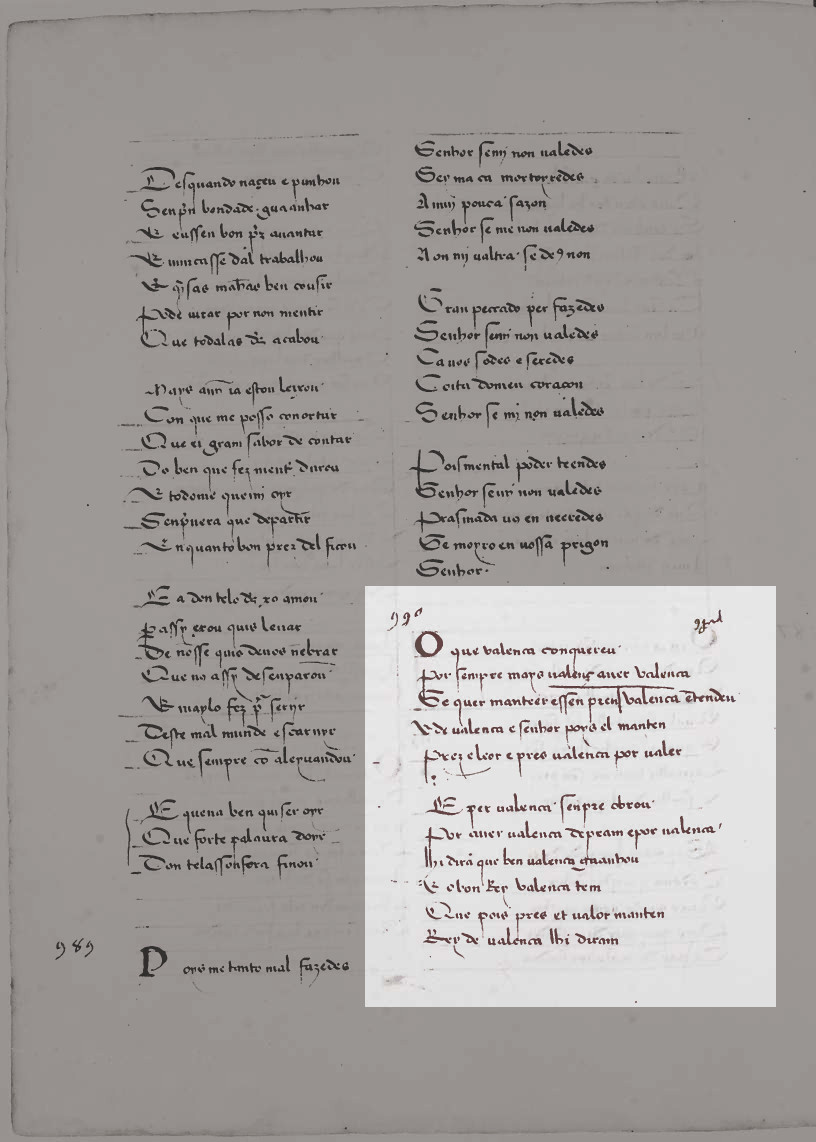 Desquando naçeu e punhou
Senpre bondade guaanhar
E eussen bon prez auantar
E nuncasse dal trabalhou
Pode uirar por non mentir
Que todalas dez acabou
Con que me posso conortar
Que ei gram sabor de contar
Do ben que fez mentr durou
E todome queini oyr
Senpuera que departir
En quanto bon prez del ficou
passy
Que no assy desenparou
E maylo fez
Deste mal mundo e scarnyr
Que sempre co alexandou
E quena ben quiser oyr
Que forte palaura doyr
Don telassonfora finou
989
Poys me tanto mal fazedes
Senhor semj non ualedes
Sey ma ca mortorredes
A muy pouca sazon
Senhor se me non ualedes
Non mj ualtra se de9 non
Gran peccado per fazedes
Senhor semj non ualedes
Ca uos sodes e seredes
Coita domeu coraçon
Senhor se mj non ualedes
Poismental poder teendes
Senhor semj non ualedes
Prasmada uo en ueeredes
Se moyro en uossa prigon
Senhor
990
O que valenca conquereu
Por sempre mays ualenç auer valenca
Se quer manteer essen pren valenca etendeu
E de valenca e senhor poys el manten
Prez e leor e pres ualenca por valer
E per ualenca senpre obrou
Por auer ualenca depram e por ualenca
lhi dira que ben ualenca guaanhou
E o bon Rey valenca tem
Que pois pres et ualor manten
Rey de ualenca lhi diram